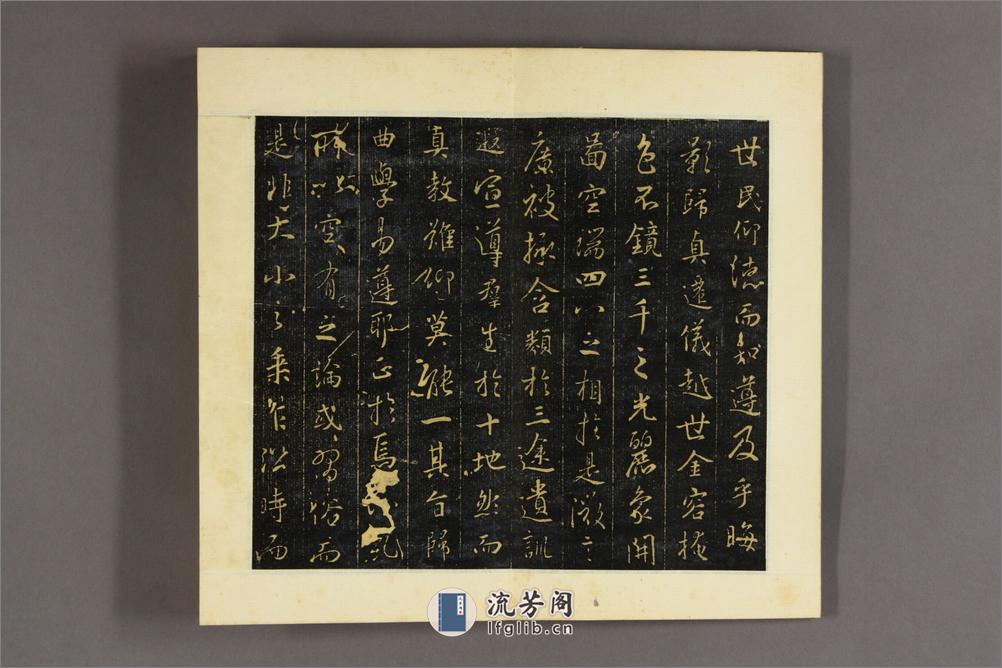 世民仰德而知遵及乎晦
影歸真遷儀越世金容掩
色不鏡三千之光麗象開
圖空端四八之相於是微言
廣被拯含類於三途遺訓
遐宣導群生於十地然而
真教難仰莫能一其旨歸
曲學易遵耶正於焉
所以空有之論或習俗而
是非大小之乘乍沿時而
流芳阁
lfglib.cn